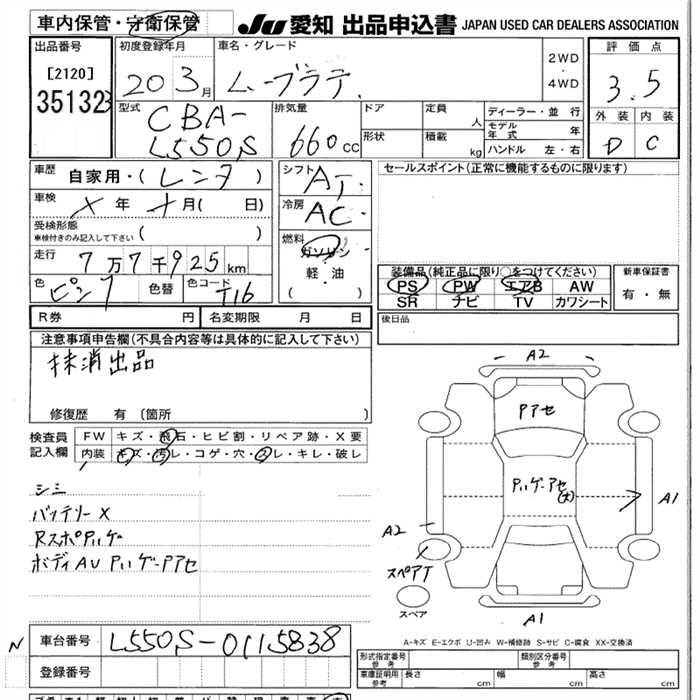 車内保管・守衛保管
JU 愛知 出品申込書 JAPAN USED CAR DEALERS ASSOCIATION
出品番号
[2120]
35132
初度登録年月
20 3月
車名・グレード
ムーブラテ
2WD
・
4WD
評価点
3.5
外装 内装
D C
型式
CBA-
L550S
排気量
660cc
ドア
形状
定員 人
積載 kg
ディーラー・並 行
モデル年式 年
ハンドル 左・右
車歴 自家用・(レンタ)
車検 × 年 × 月( 日)
受検形態
車検付きのみ記入して下さい ( )
走行 7万7千925km
色 ピンク 色替 色コード T16
シフト AT
冷房 AC
燃料
ガソリン
・
軽 油
( )
セールスポイント(正常に機能するものに限ります)
装備品(純正品に限り○をつけてください)
PS PW エアB AW
SR ナビ TV カワシート
新車保証書
有・無
R券 円 名変期限 月 日
後日品
注意事項申告欄(不具合内容等は具体的に記入して下さい)
抹消出品
修復歴 有 (箇所 )
検査員
記入欄
FW キズ・飛石・ヒビ割・リペア跡・X要
内装 キズ・汚レ・コゲ・穴・スレ・キレ・破レ
シミ
バッテリーX
RスポPハゲ
ボディAU PハゲーPアセ
A2
Pアセ
Pハゲ-アセ
(大)
A1
A2
スペアT
スペア
A1
A-キズ E-エクボ U-凹み W-補修跡 S-サビ C-腐食 XX-交換済
N
車台番号 L550S-0115838
登録番号
型式指定番号
参考
類別区分番号
参考
車庫証明用
参考
長さ cm 幅 cm 高さ cm